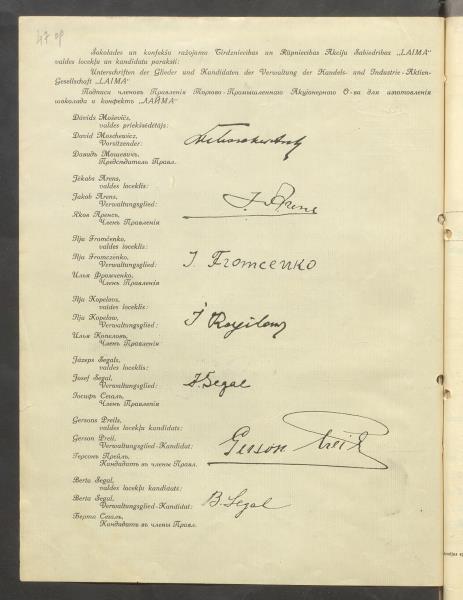 Šokolades un konfekšu ražojama Tirdzniecibas un Rūpniecibas Akciju Sabiedribas „LAIMA"
valdes locekļu un kandidatu paraksti:
Unterschriften der Glieder und Kandidaten der Verwaltung der Handels- und Industrie-Aktien-
Gesellschaft „LAIMA"
Подписи членовъ Правленiя Торгово-Промышленнаго Акцiонернаго О-ва для изготовленiя
шоколада и конфектъ „ЛАЙМА"
Dāvids Moševics,
valdes priekšsēdētājs:
David Moschewicz,
Vorsitzender:
Давидъ Мошевичъ,
Предсѣдатель Правл.
Jēkabs Arens,
valdes loceklis:
Jakob Arens,
Verwaltungsglied:
Яковъ Аренсъ,
Членъ Правленiя
J. Arens
Iļja Fromčenko,
valdes loceklis:
Ilja Fromczenko,
Verwaltungsglied:
Илья Фромченко,
Членъ Правленiя
J. Fromcenko
Iļja Kopelovs,
valdes loceklis:
Ilja Kopelow,
Verwaltungsglied:
Илья Копеловъ,
Членъ Правленiя
Jāzeps Segals,
valdes loceklis:
Josef Segal,
Verwaltungsglied:
Iосифъ Сегаль,
Членъ Правленiя
J Segal
Gersons Preils,
valdes locekļu kandidats:
Gerson Preil,
Verwaltungsglied-Kandidat:
Герсонъ Прейль,
Кандидатъ въ члены Правл.
Gerson Preil
Berta Segal,
valdes locekļu kandidats:
Berta Segal,
Verwaltungsglied-Kandidat:
Берта Сегаль,
Кандидатъ въ члены Правл.
B. Segal